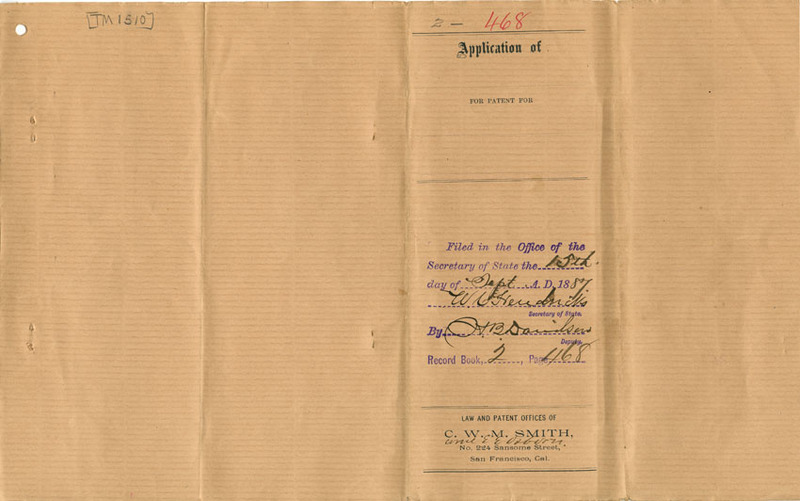 [TM 1510]
2 - 468
Application of
FOR PATENT FOR
Filed in the Office of the
Secretary of State the 15th
day of Sept A. D. 1887
W. C. Hendricks
Secretary of State.
By H B Davidson
Deputy.
Record Book, 2, Page 468
LAW AND PATENT OFFICES OF
C. W. M. SMITH,
and E E Osborn
No. 224 Sansome Street,
San Francisco, Cal.